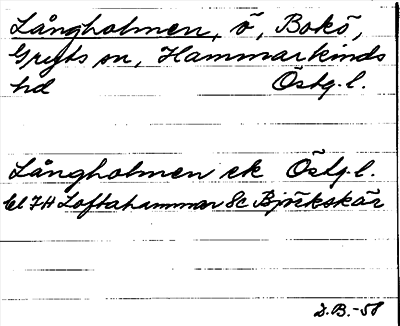 Långholmen, ö, Bokö,
Gryts sn, Hammarkinds
hd Östg.l.
Långholmen ek Östg.l.
bl 7H Loftahammar 8c Björkskär
D.B.-58